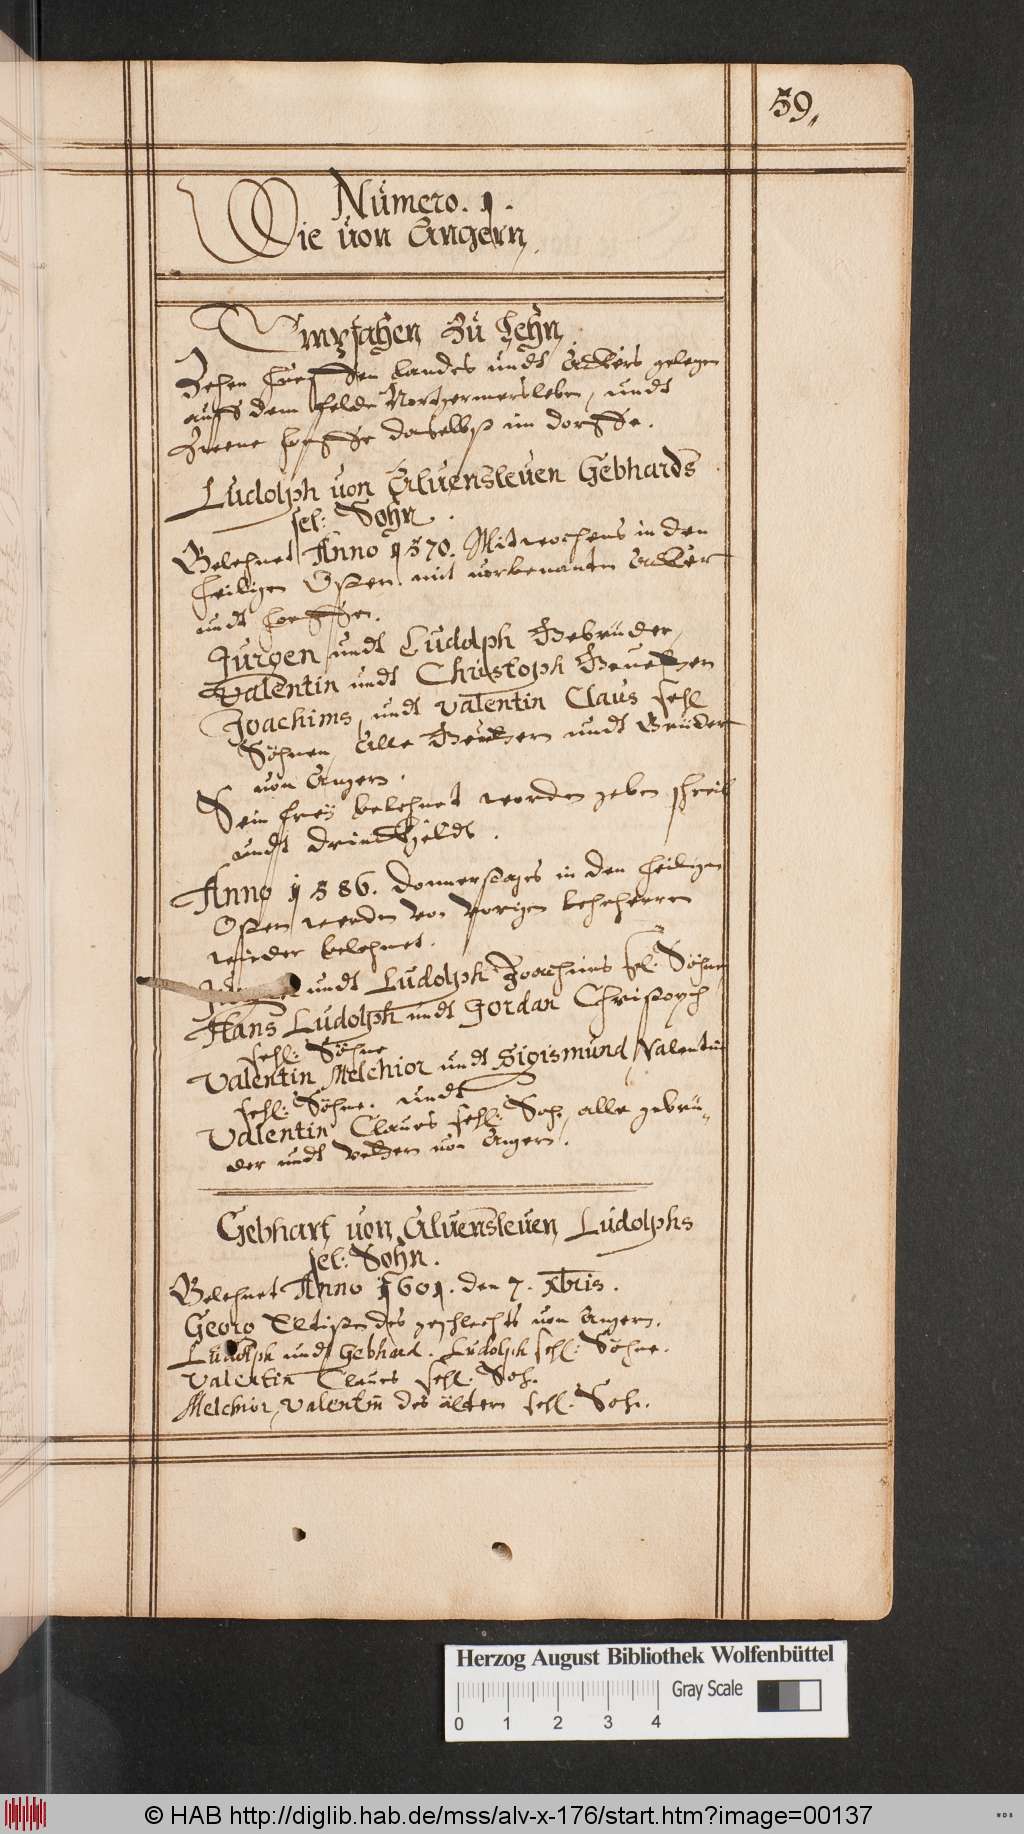 59,
Numero. 1.
Die von Angern
Empfahen Zu Lehn,
Zehen Hueffen Landes undt Ackers gelegen
auff dem Felde Nortgermersleben, undt
Zweene Höffe daselbst im dorffe.
Ludolph von Alvensleven Gebhards
sel: Sohn.
Belehnet Anno 1570. Mitwochens in den
heiligen Ostern mit vorbenanten Acker
undt Hoeffen.
Jurgen undt Ludolph Gebrüder,
Valentin undt Christoph Gevettern
Joachims, undt Valentin Claus sehl
Söhnen, Alle Gevettern undt Brüder
von Angern.
Sein frey belehnet worden geben schreib
undt drinckgeldt.
Anno 1586. Donnerstages in den heiligen
Ostern werden von vorigen Lehnherren
wieder belehnet.
undt Ludolph Joachims sel: Söhne
Hans Ludolph undt Jordan Christoph
sehl: Söhne
Valentin Melchior undt Sigismund Valentin
sehl: Söhne. undt
Valentin Claues sehl: Soh, alle gebrü„
der undt Vettern von Angern.
Gebhart von Alvensleven Ludolphs
sel: Sohn.
Belehnet Anno 1601. den 7. xbris.
Georg Eltister des geschlechts von Angern.
Ludolph und Gebhard. Ludolph sehl: Söhne.
Valentin Claues sehl. Soh.
Melchior, Valentin des ältern sehl. Soh.
Herzog August Bibliothek Wolfenbüttel
Gray Scale
0 1 2 3 4
© HAB http://diglib.hab.de/mss/alv-x-176/start.htm?image=00137